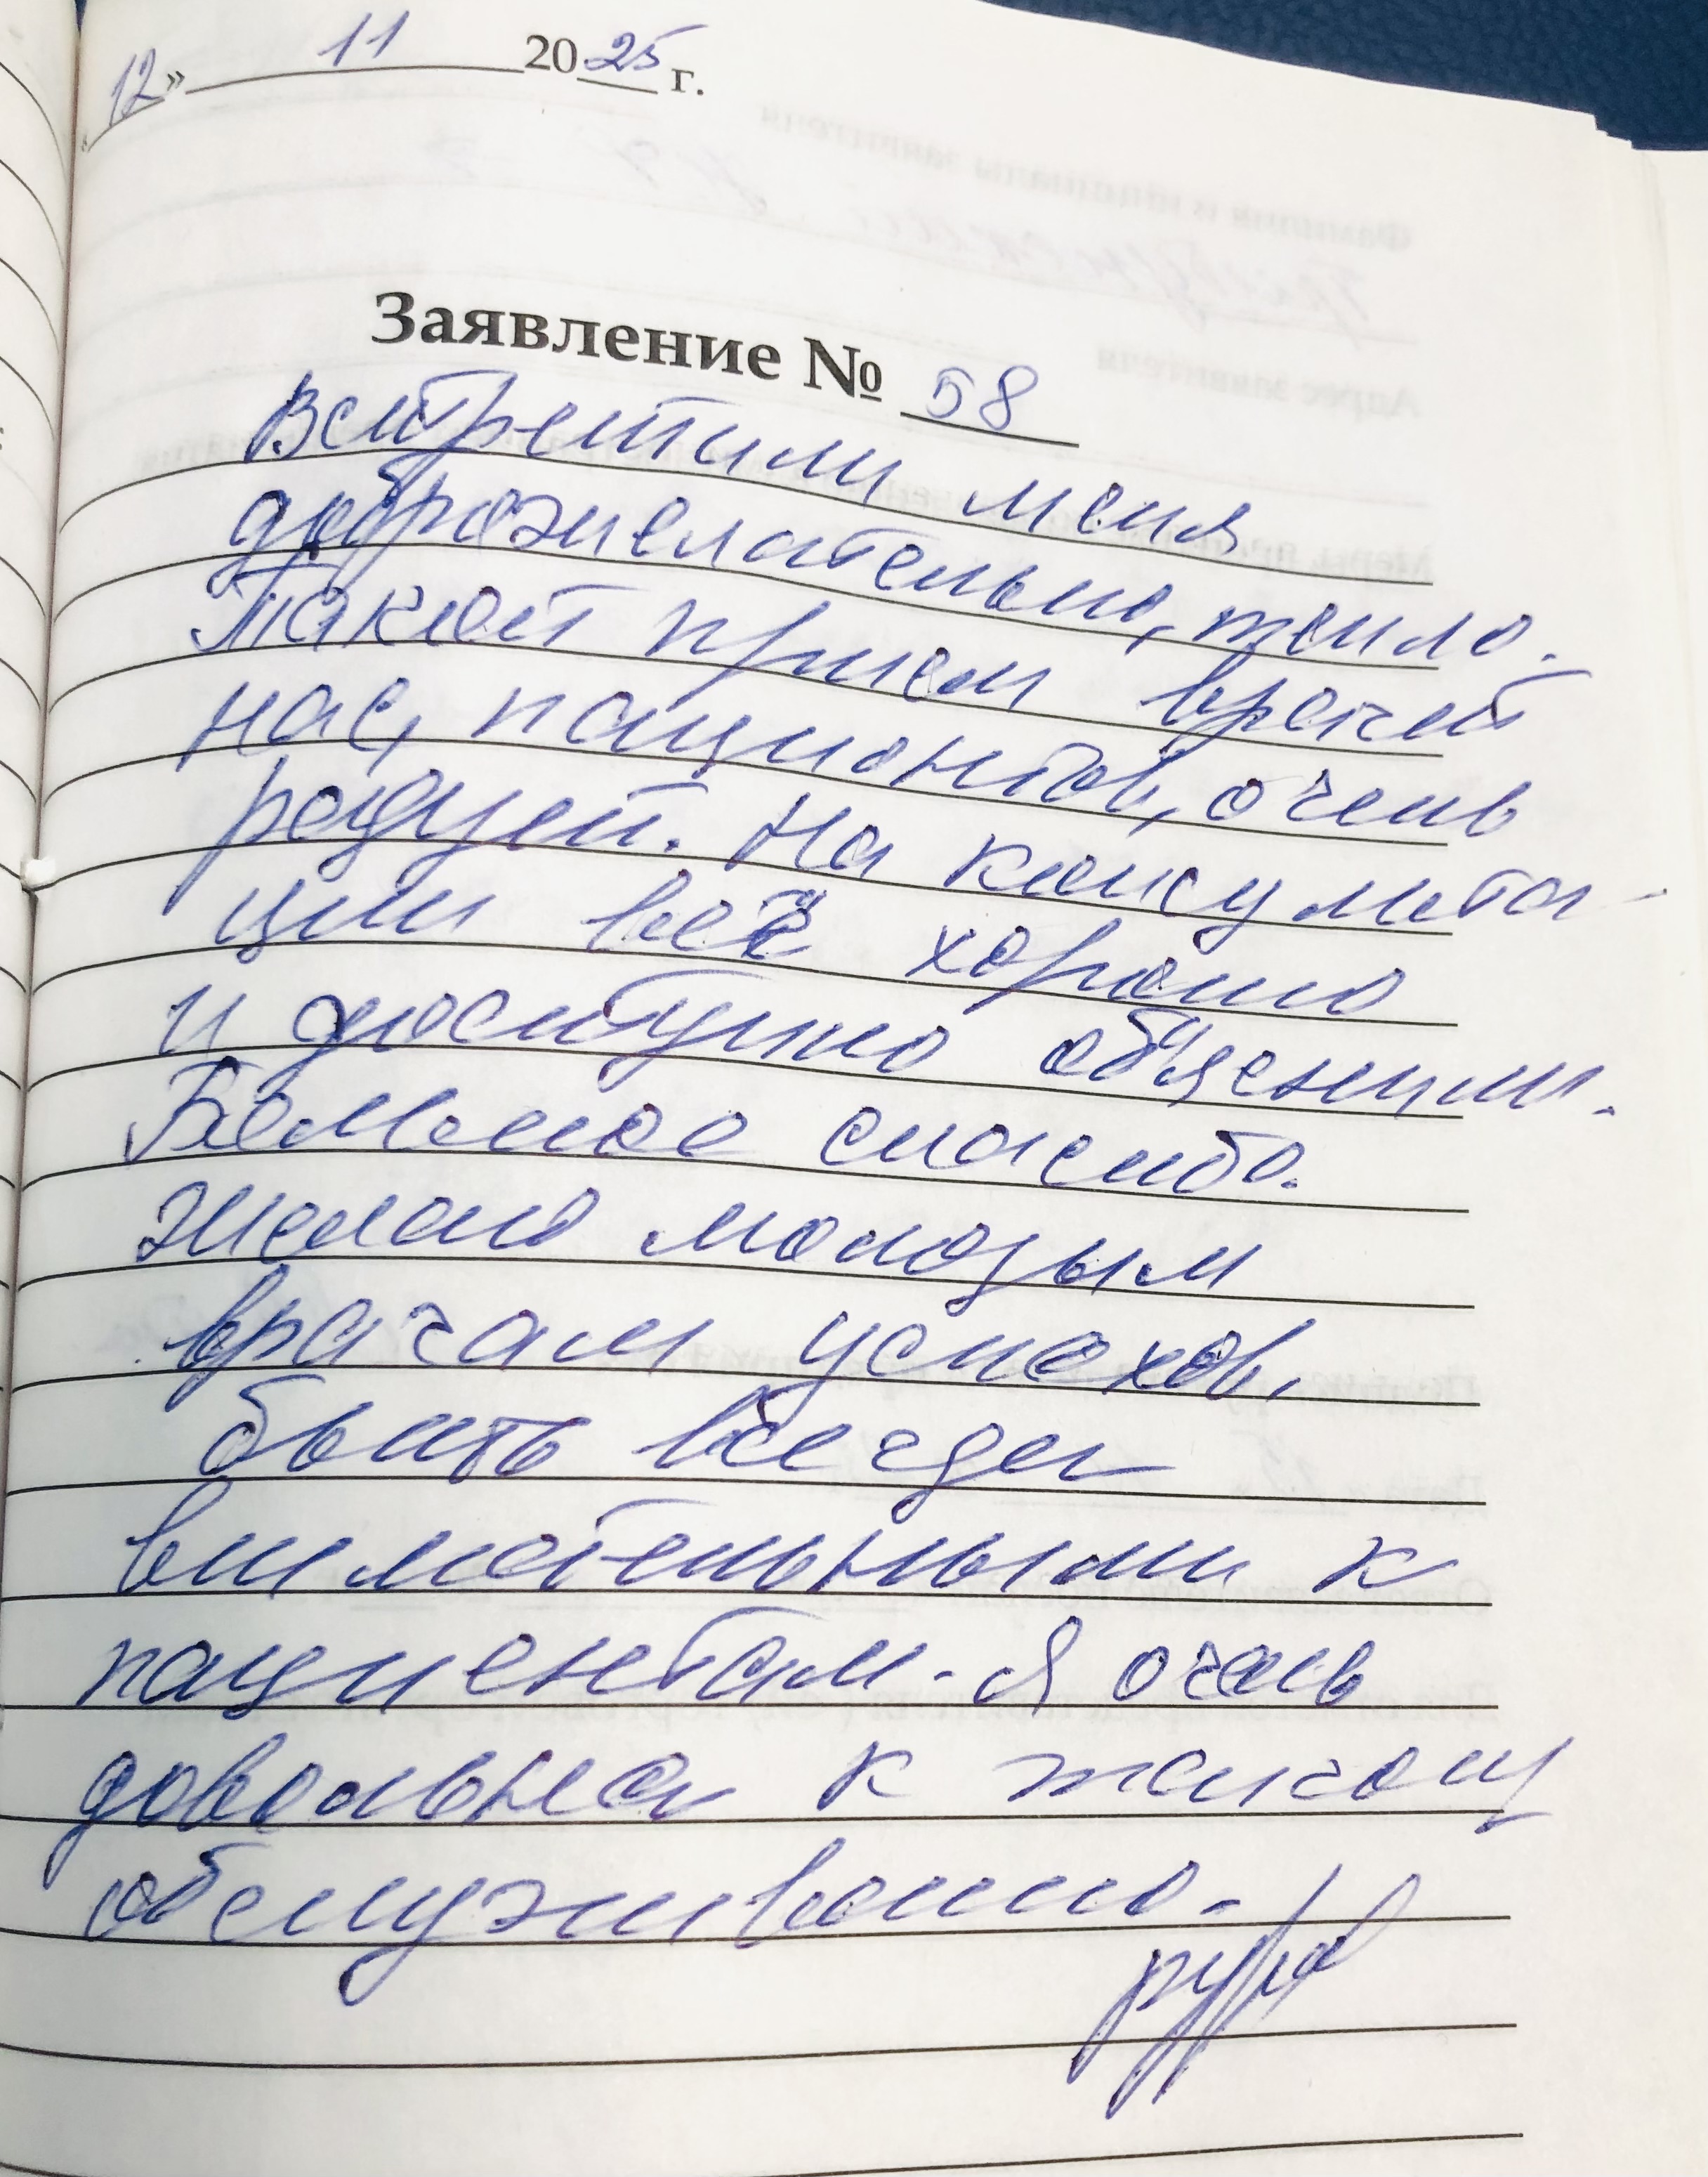 «12» 11 2025 г.
Заявление № 58
Встретили меня
доброжелательно, тепло.
Такой прием врачей
нас, пациентов, очень
радует. На консульта-
ции всё хорошо
и доступно объяснили.
Большое спасибо.
Желаю молодым
врачам успехов,
быть всегда
внимательными к
пациентам. Я очень
довольна к
обслуживанию.